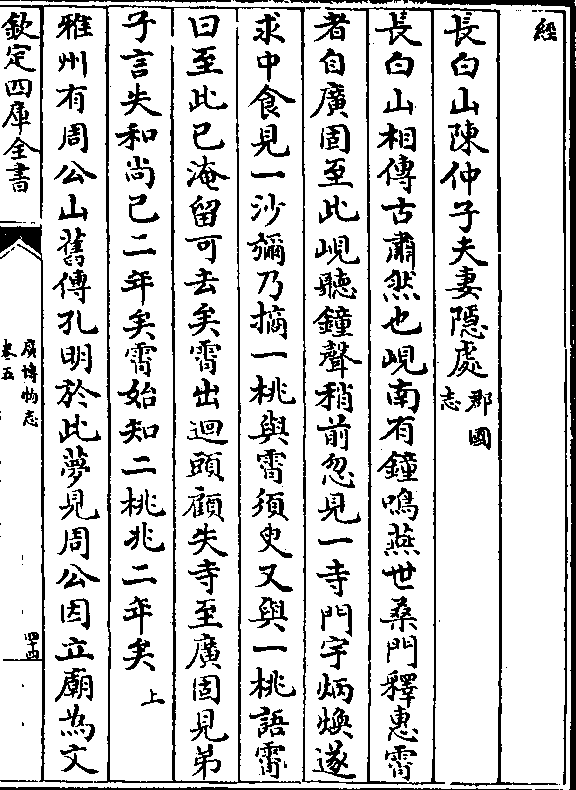 經
長白山陳仲子夫妻隱處郡國志
長白山相傳古肅然也峴南有鐘鳴燕世桑門釋惠霄
者自廣固至此峴聽鐘聲稍前忽見一寺門宇炳煥遂
求中食見一沙彌乃摘一桃與霄須臾又與一桃語霄
曰至此已淹留可去矣霄出迴頭顧失寺至廣固見弟
子言失和尚已二年矣霄始知二桃兆二年矣上
雅州有周公山舊傳孔明於此夢見周公因立廟為文
欽定四庫全書
廣博物志
卷五
四十四